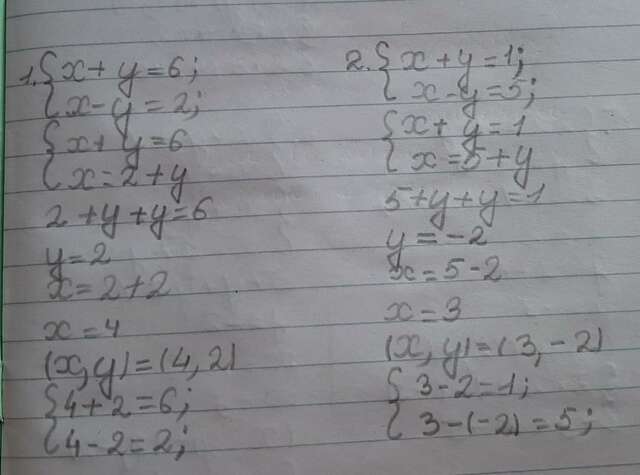 1. { x + y = 6;
{ x - y = 2;
{ x + y = 6
{ x = 2 + y
2 + y + y = 6
y = 2
x = 2 + 2
x = 4
(x, y) = (4, 2)
{ 4 + 2 = 6;
{ 4 - 2 = 2;
2. { x + y = 1;
{ x - y = 5;
{ x + y = 1
{ x = 5 + y
5 + y + y = 1
y = -2
x = 5 - 2
x = 3
(x, y) = (3, -2)
{ 3 - 2 = 1;
{ 3 - (-2) = 5;